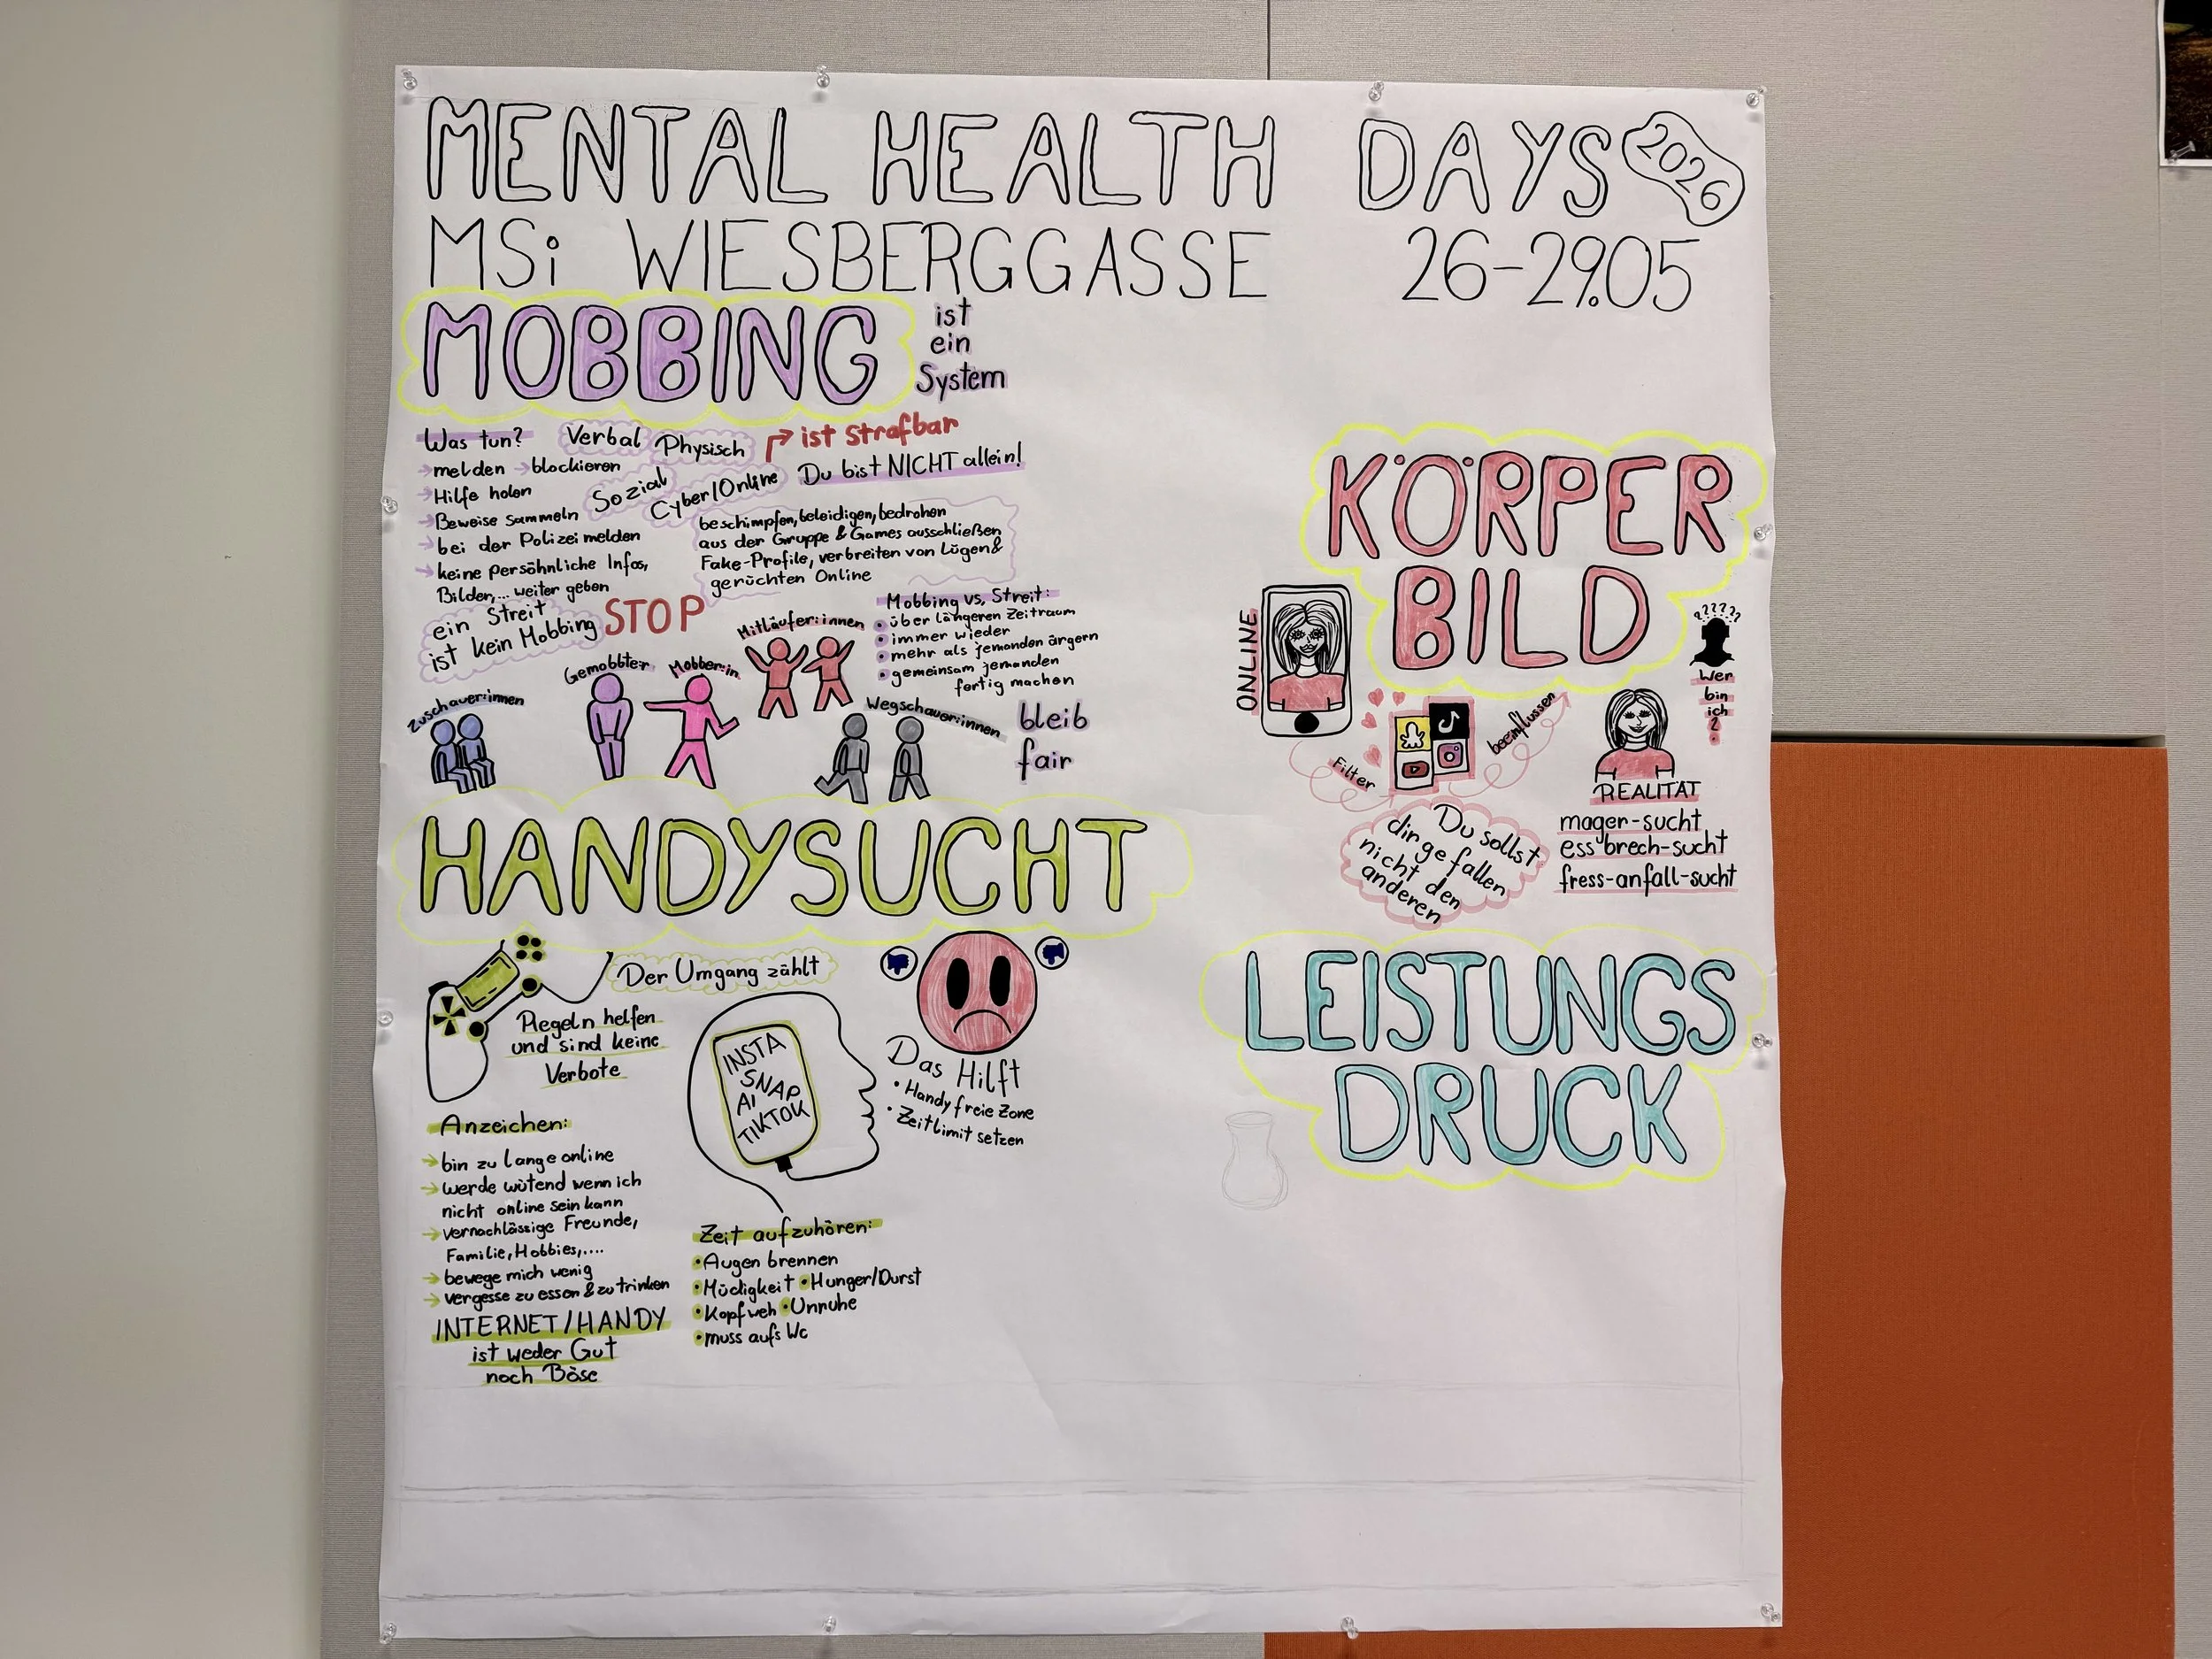 MENTAL HEALTH DAYS 2026
MSi WIESBERGGASSE 26-29.05
MOBBING
ist
ein
System
Was tun?
→melden →blockieren
→Hilfe holen
→Beweise sammeln
→bei der Polizei melden
→keine persöhnliche Infos,
Bilder,... weiter geben
Verbal
Physisch
Sozial
Cyber/Online
ist strafbar
Du bist NICHT allein!
beschimpfen, beleidigen, bedrohen
aus der Gruppe & Games ausschließen
Fake-Profile, verbreiten von Lügen &
gerüchten Online
ein Streit
ist kein Mobbing
STOP
Mobbing vs. Streit:
• über längeren Zeitraum
• immer wieder
• mehr als jemanden ärgern
• gemeinsam jemanden
fertig machen
Zuschauer:innen
Gemobbter
Mobber:in
Mitläufer:innen
Wegschauer:innen
bleib
fair
KÖRPER
BILD
ONLINE
????
Wer
bin
ich
?
Filter
beeinflussen
REALITÄT
Du sollst
dir gefallen
nicht den
anderen
mager-sucht
ess brech-sucht
fress-anfall-sucht
HANDYSUCHT
Der Umgang zählt
Regeln helfen
und sind keine
Verbote
INSTA
SNAP
AI
TIKTOK
Das Hilft
• Handy freie Zone
• Zeitlimit setzen
Anzeichen:
→ bin zu lange online
→ werde wütend wenn ich
nicht online sein kann
→ vernachlässige Freunde,
Familie, Hobbies,....
→ bewege mich wenig
→ vergesse zu essen & zu trinken
INTERNET/HANDY
ist weder Gut
noch Böse
Zeit aufzuhören:
• Augen brennen
• Müdigkeit • Hunger/Durst
• Kopfweh • Unruhe
• muss aufs Wc
LEISTUNGS
DRUCK